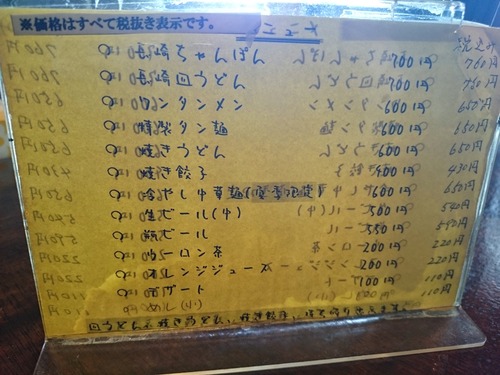 ※価格はすべて税抜き表示です。
メニュー 税込み
長崎ちゃんぽん 700円 760円
長崎皿うどん 700円 760円
ワンタンメン 600円 650円
特製タン麺 600円 650円
焼きうどん 600円 650円
焼き餃子 400円 430円
冷やし中華麺(夏季限定) 600 650円
生ビール(中) 500円 540円
瓶ビール 550円
ウーロン茶 200円 220円
オレンジジュース 200円 220円
デザート 100円 110円
めし(小) 100円 110円
皿うどん、焼きうどん、焼き餃子、